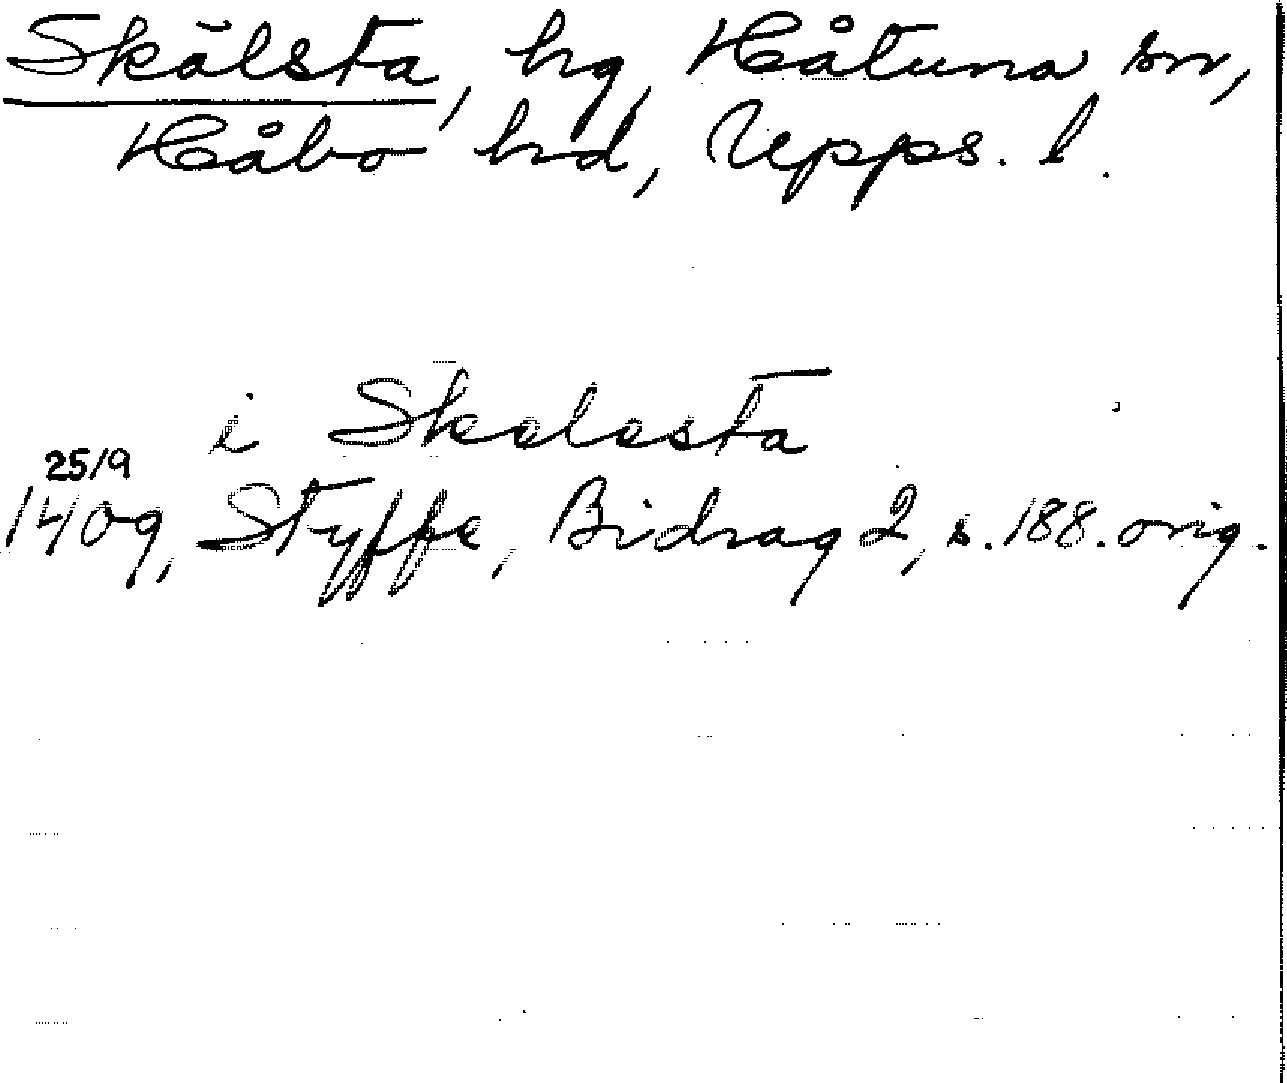 Skälsta, hg, Håtuna sn,
Håbo hd, Upps. l.
i Skelesta
25/9
1409, Styffe, Bidrag 2, s. 188. orig.